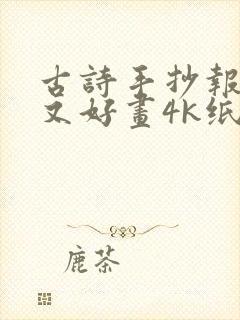 古詩手抄報
又好畫4K纸
鹿茶